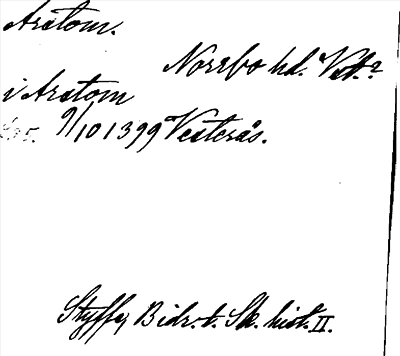 Aratom.
Norrbo hd. Vstm?
i Aratom
9/10 1399 Vesterås.
Styffe, Bidr. t. Sk. hist. II.